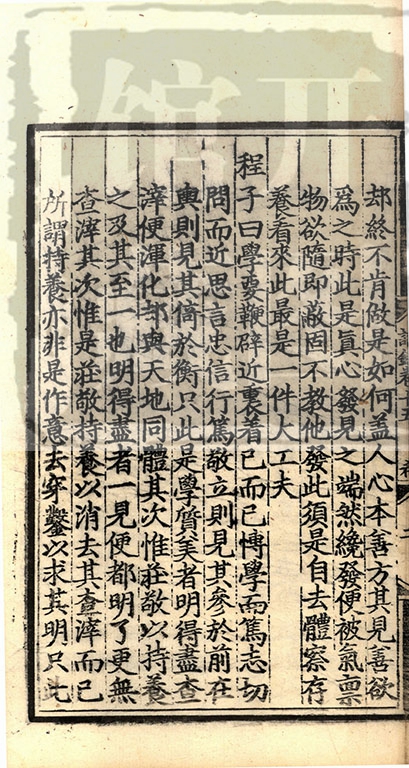 却終不肯做是如何盖人心本善方其見善欲
爲之時此是眞心發見之端然纔發便被氣禀
物欲隨即蔽固不教他發此須是自去體察存
養看來此最是一件大工夫
程子曰學要鞭辟近裏着己而已博學而篤志切
問而近思言忠信行篤敬立則見其參於前在
輿則見其倚於衡只此是學質美者明得盡查
滓便渾化却與天地同體其次惟莊敬以持養
之及其至一也明得盡者一見便都明了更無
查滓其次惟是莊敬持養以消去其查滓而已
所謂持養亦非是作意去穿鑿以求其明只此